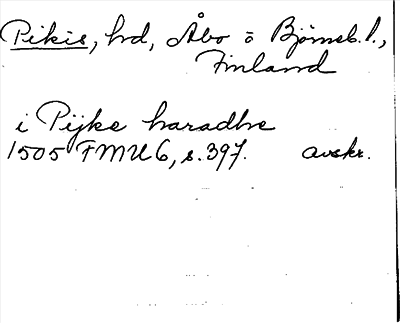 Pikis, hd, Åbo o Björneb. l.,
Finland
i Pijke haradhe
1505 FMU 6, s. 397. avskr.